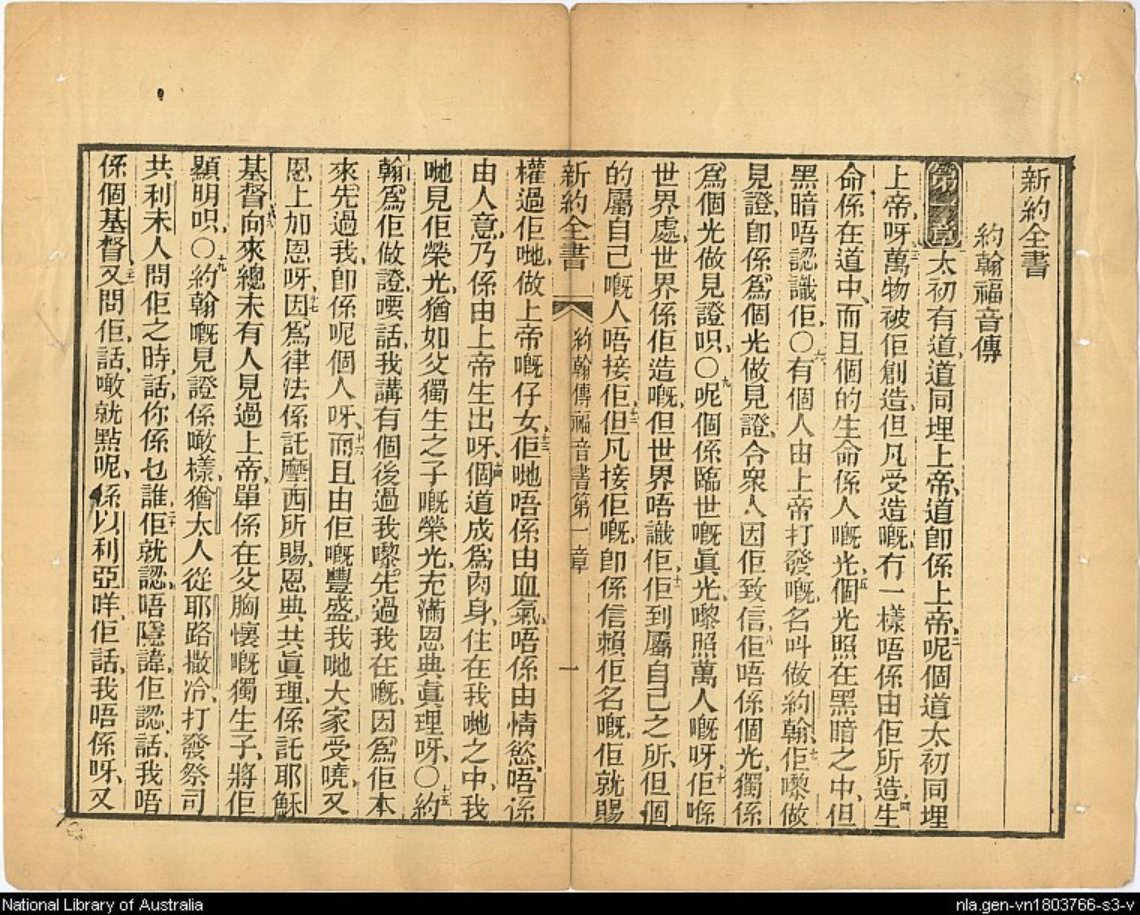 新約全書
約翰福音傳
第一章太初有道、道同埋上帝、道卽係上帝、二呢個道太初同埋
上帝呀、三萬物被佢創造、但凡受造嘅、冇一樣唔係由佢所造、四生
命係在道中、而且個的生命係人嘅光、五個光照在黑暗之中、但
黑暗唔認識佢○六有個人由上帝打發嘅、名叫做約翰、七佢嚟做
見證、卽係爲個光做見證、令衆人因佢致信、八佢唔係個光、獨係
爲個光做見證呮○九呢個係臨世嘅眞光、嚟照萬人嘅呀、十佢喺
世界處、世界係佢造嘅、但世界唔識佢、十一佢到屬自己之所、但個
的屬自己嘅人唔接佢、十二但凡接佢嘅、卽係信賴佢名嘅、佢就賜
新約全書 約翰傳福音書第一章 一
權過佢哋、做上帝嘅仔女、十三佢哋唔係由血氣、唔係由情慾、唔係
由人意、乃係由上帝生出呀、十四個道成爲肉身、住在我哋之中、我
哋見佢榮光、猶如父獨生之子嘅榮光、充滿恩典眞理呀、○十五約
翰爲佢做證、嗌話、我講有個後過我嚟、先過我在嘅、因爲佢本
來先過我、卽係呢個人呀、十六而且由佢嘅豐盛、我哋大家受曉、又
恩上加恩呀、十七因爲律法係託摩西所賜、恩典共眞理、係託耶穌
基督、十八向來總未有人見過上帝、單係在父胸懷嘅獨生子、將佢
顯明呮、○十九約翰嘅見證係噉樣、猶太人從耶路撒冷、打發祭司
共利未人問佢之時、話、你係乜誰、二十佢就認、唔隱諱、佢認話、我唔
係個基督、二一又問佢、話、噉就點呢、係以利亞咩、佢話、我唔係呀、又
National Library of Australia
nla.gen-vn1803766-s3-v